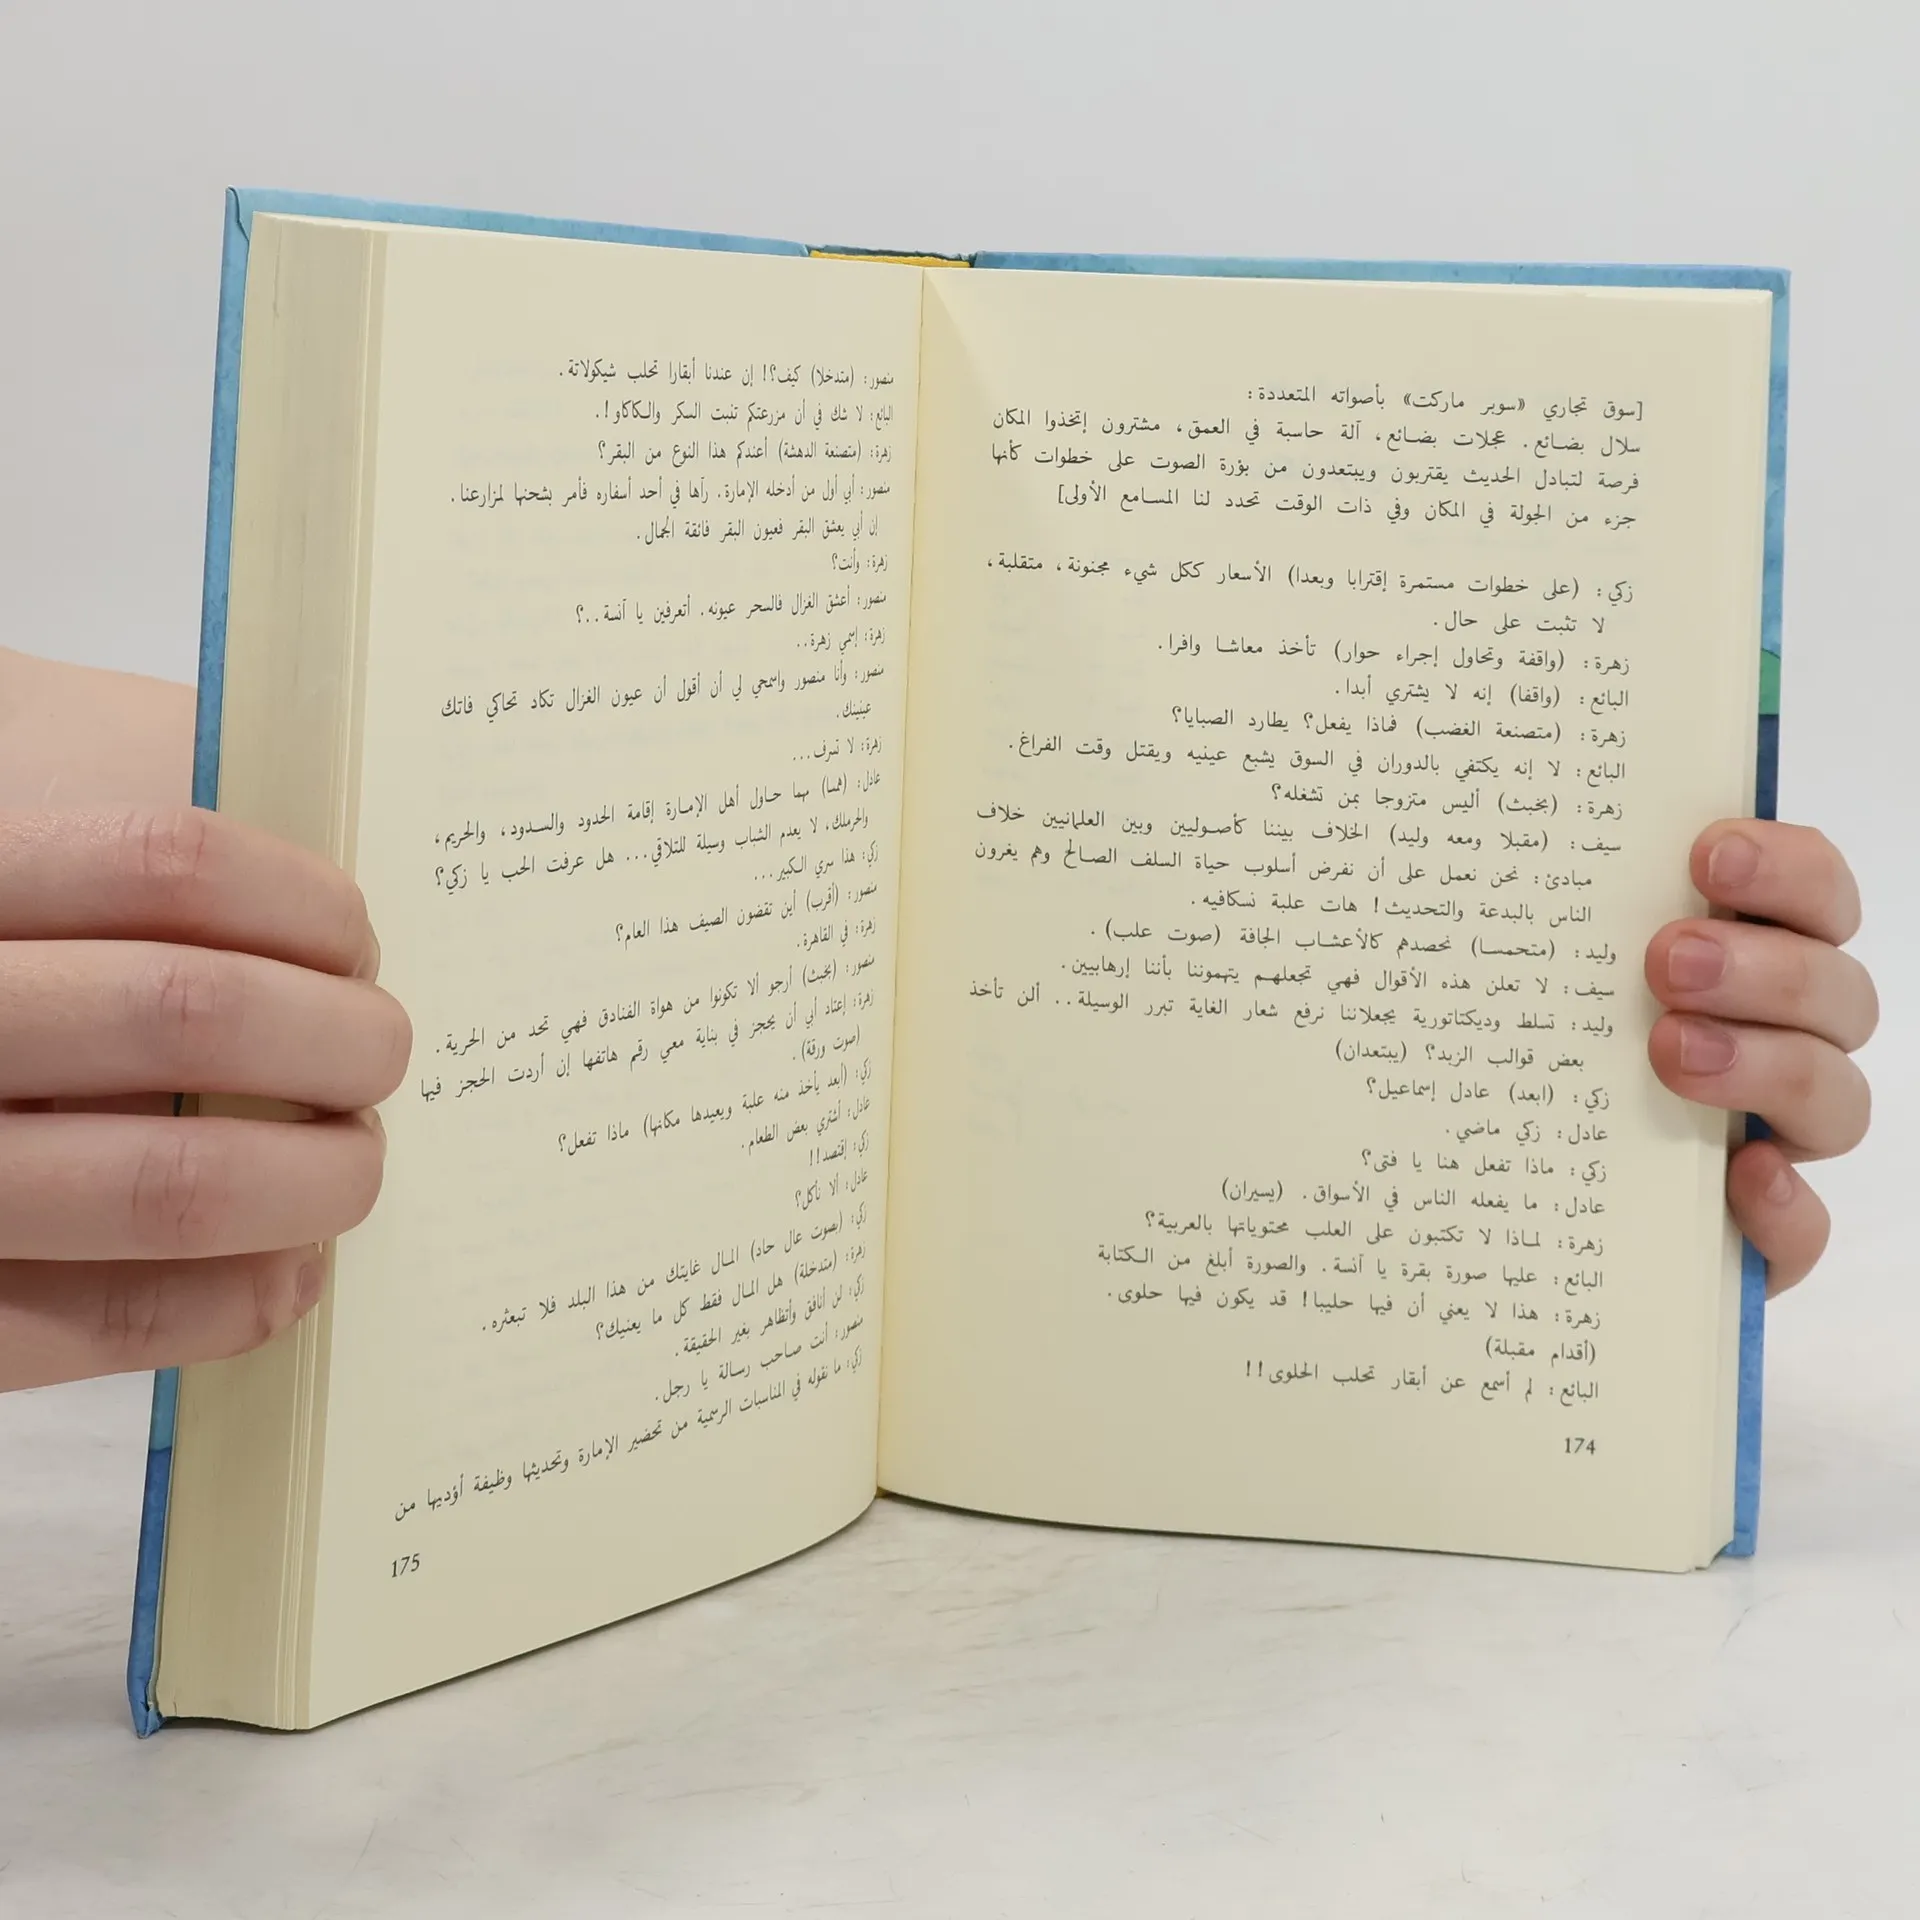 [سوق تجاري «سوبر ماركت» بأصواته المتعددة:
سلال بضائع. عجلات بضائع، آلة حاسبة في العمق، مشترون إتخذوا المكان
فرصة لتبادل الحديث يقتربون ويبتعدون من بؤرة الصوت على خطوات كأنها
جزء من الجولة في المكان وفي ذات الوقت تحدد لنا المسامع الأولى]
زكي: (على خطوات مستمرة إقترابا وبعدا) الأسعار ككل شيء مجنونة، متقلبة،
لا تثبت على حال.
زهرة: (واقفة وتحاول إجراء حوار) تأخذ معاشا وافرا.
البائع: (واقفا) إنه لا يشتري أبدا.
زهرة: (متصنعة الغضب) فماذا يفعل؟ يطارد الصبايا؟
البائع: لا إنه يكتفي بالدوران في السوق يشبع عينيه ويقتل وقت الفراغ.
زهرة: (بخبث) أليس متزوجا بمن تشغله؟
سيف: (مقبلا ومعه وليد) الخلاف بيننا كأصوليين وبين العلمانيين خلاف
مبادئ: نحن نعمل على أن نفرض أسلوب حياة السلف الصالح وهم يغرون
الناس بالبدعة والتحديث! هات علبة نسكافيه.
وليد: (متحمسا) نحصدهم كالأعشاب الجافة (صوت علب).
سيف: لا تعلن هذه الأقوال فهي تجعلهم يتهموننا بأننا إرهابيين.
وليد: تسلط وديكتاتورية يجعلاننا نرفع شعار الغاية تبرر الوسيلة.. ألن تأخذ
بعض قوالب الزبد؟ (يبتعدان)
زكي: (ابعد) عادل إسماعيل؟
عادل: زكي ماضي.
زكي: ماذا تفعل هنا يا فتى؟
عادل: ما يفعله الناس في الأسواق. (يسيران)
زهرة: لماذا لا تكتبون على العلب محتوياتها بالعربية؟
البائع: عليها صورة بقرة يا آنسة. والصورة أبلغ من الكتابة
زهرة: هذا لا يعني أن فيها حليبا! قد يكون فيها حلوى.
(أقدام مقبلة)
البائع: لم أسمع عن أبقار تحلب الحلوى!!
174
منصور: (متدخلا) كيف؟! إن عندنا أبقارا تحلب شيكولاتة.
البائع: لا شك في أن مزرعتكم تنبت السكر والكاكاو!.
زهرة: (متصنعة الدهشة) أعندكم هذا النوع من البقر؟
منصور: أبي أول من أدخله الإمارة. رآها في أحد أسفاره فأمر بشحنها لمزارعنا.
إن أبي يعشق البقر فعيون البقر فائقة الجمال.
زهرة: وأنت؟
منصور: أعشق الغزال فالسحر عيونه. أتعرفين يا آنسة..؟
زهرة: إسمي زهرة..
منصور: وأنا منصور واسمحي لي أن أقول أن عيون الغزال تكاد تحاكي فاتك
عينيك.
زهرة: لا تسرف...
عادل: (همسا) مهما حاول أهل الإمارة إقامة الحدود والسدود، والحريم،
والحرملك، لا يعدم الشباب وسيلة للتلاقي... هل عرفت الحب يا زكي؟
زكي: هذا سري الكبير...
منصور: (أقرب) أين تقضون الصيف هذا العام؟
زهرة: في القاهرة.
منصور: (بخبث) أرجو ألا تكونوا من هواة الفنادق فهي تحد من الحرية.
زهرة: إعتاد أبي أن يحجز في بناية معي رقم هاتفها إن أردت الحجز فيها
(صوت ورقة).
زكي: (أبعد يأخذ منه علبة ويعيدها مكانها) ماذا تفعل؟
عادل: أشتري بعض الطعام.
زكي: إقتصد!!
عادل: ألا نأكل؟
زكي: (بصوت عال حاد) المال غايتك من هذا البلد فلا تبعثره.
زهرة: (متدخلة) هل المال فقط كل ما يعنيك؟
زكي: لن أنافق وأتظاهر بغير الحقيقة.
منصور: أنت صاحب رسالة يا رجل.
زكي: ما نقوله في المناسبات الرسمية من تحضير الإمارة وتحديثها وظيفة أؤديها من
175